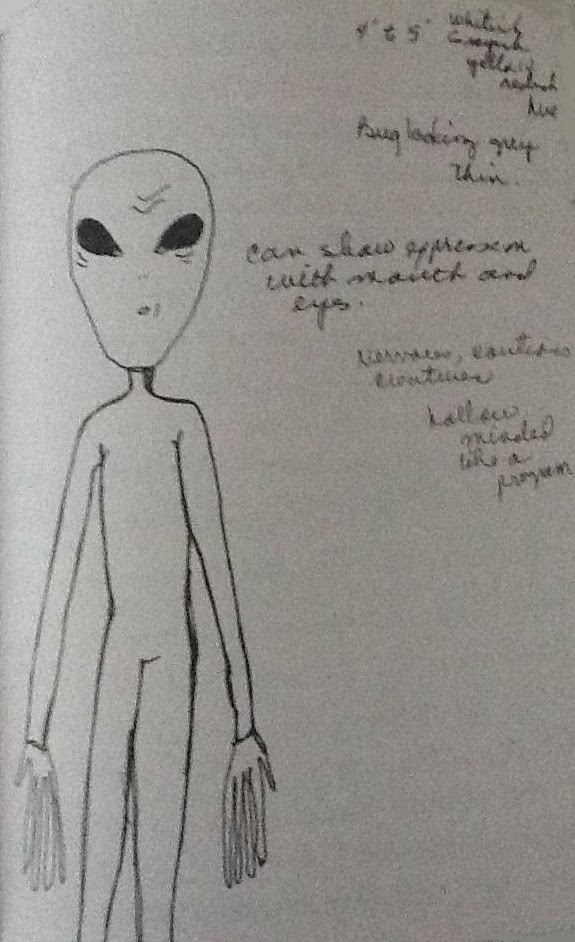 4' to 5' whitish
grayish
yellow
redish
hue
Bug looking grey
thin.
can show expression
with mouth and
eyes.
nervous, cautious
creatures
hollow
minded
like a
program